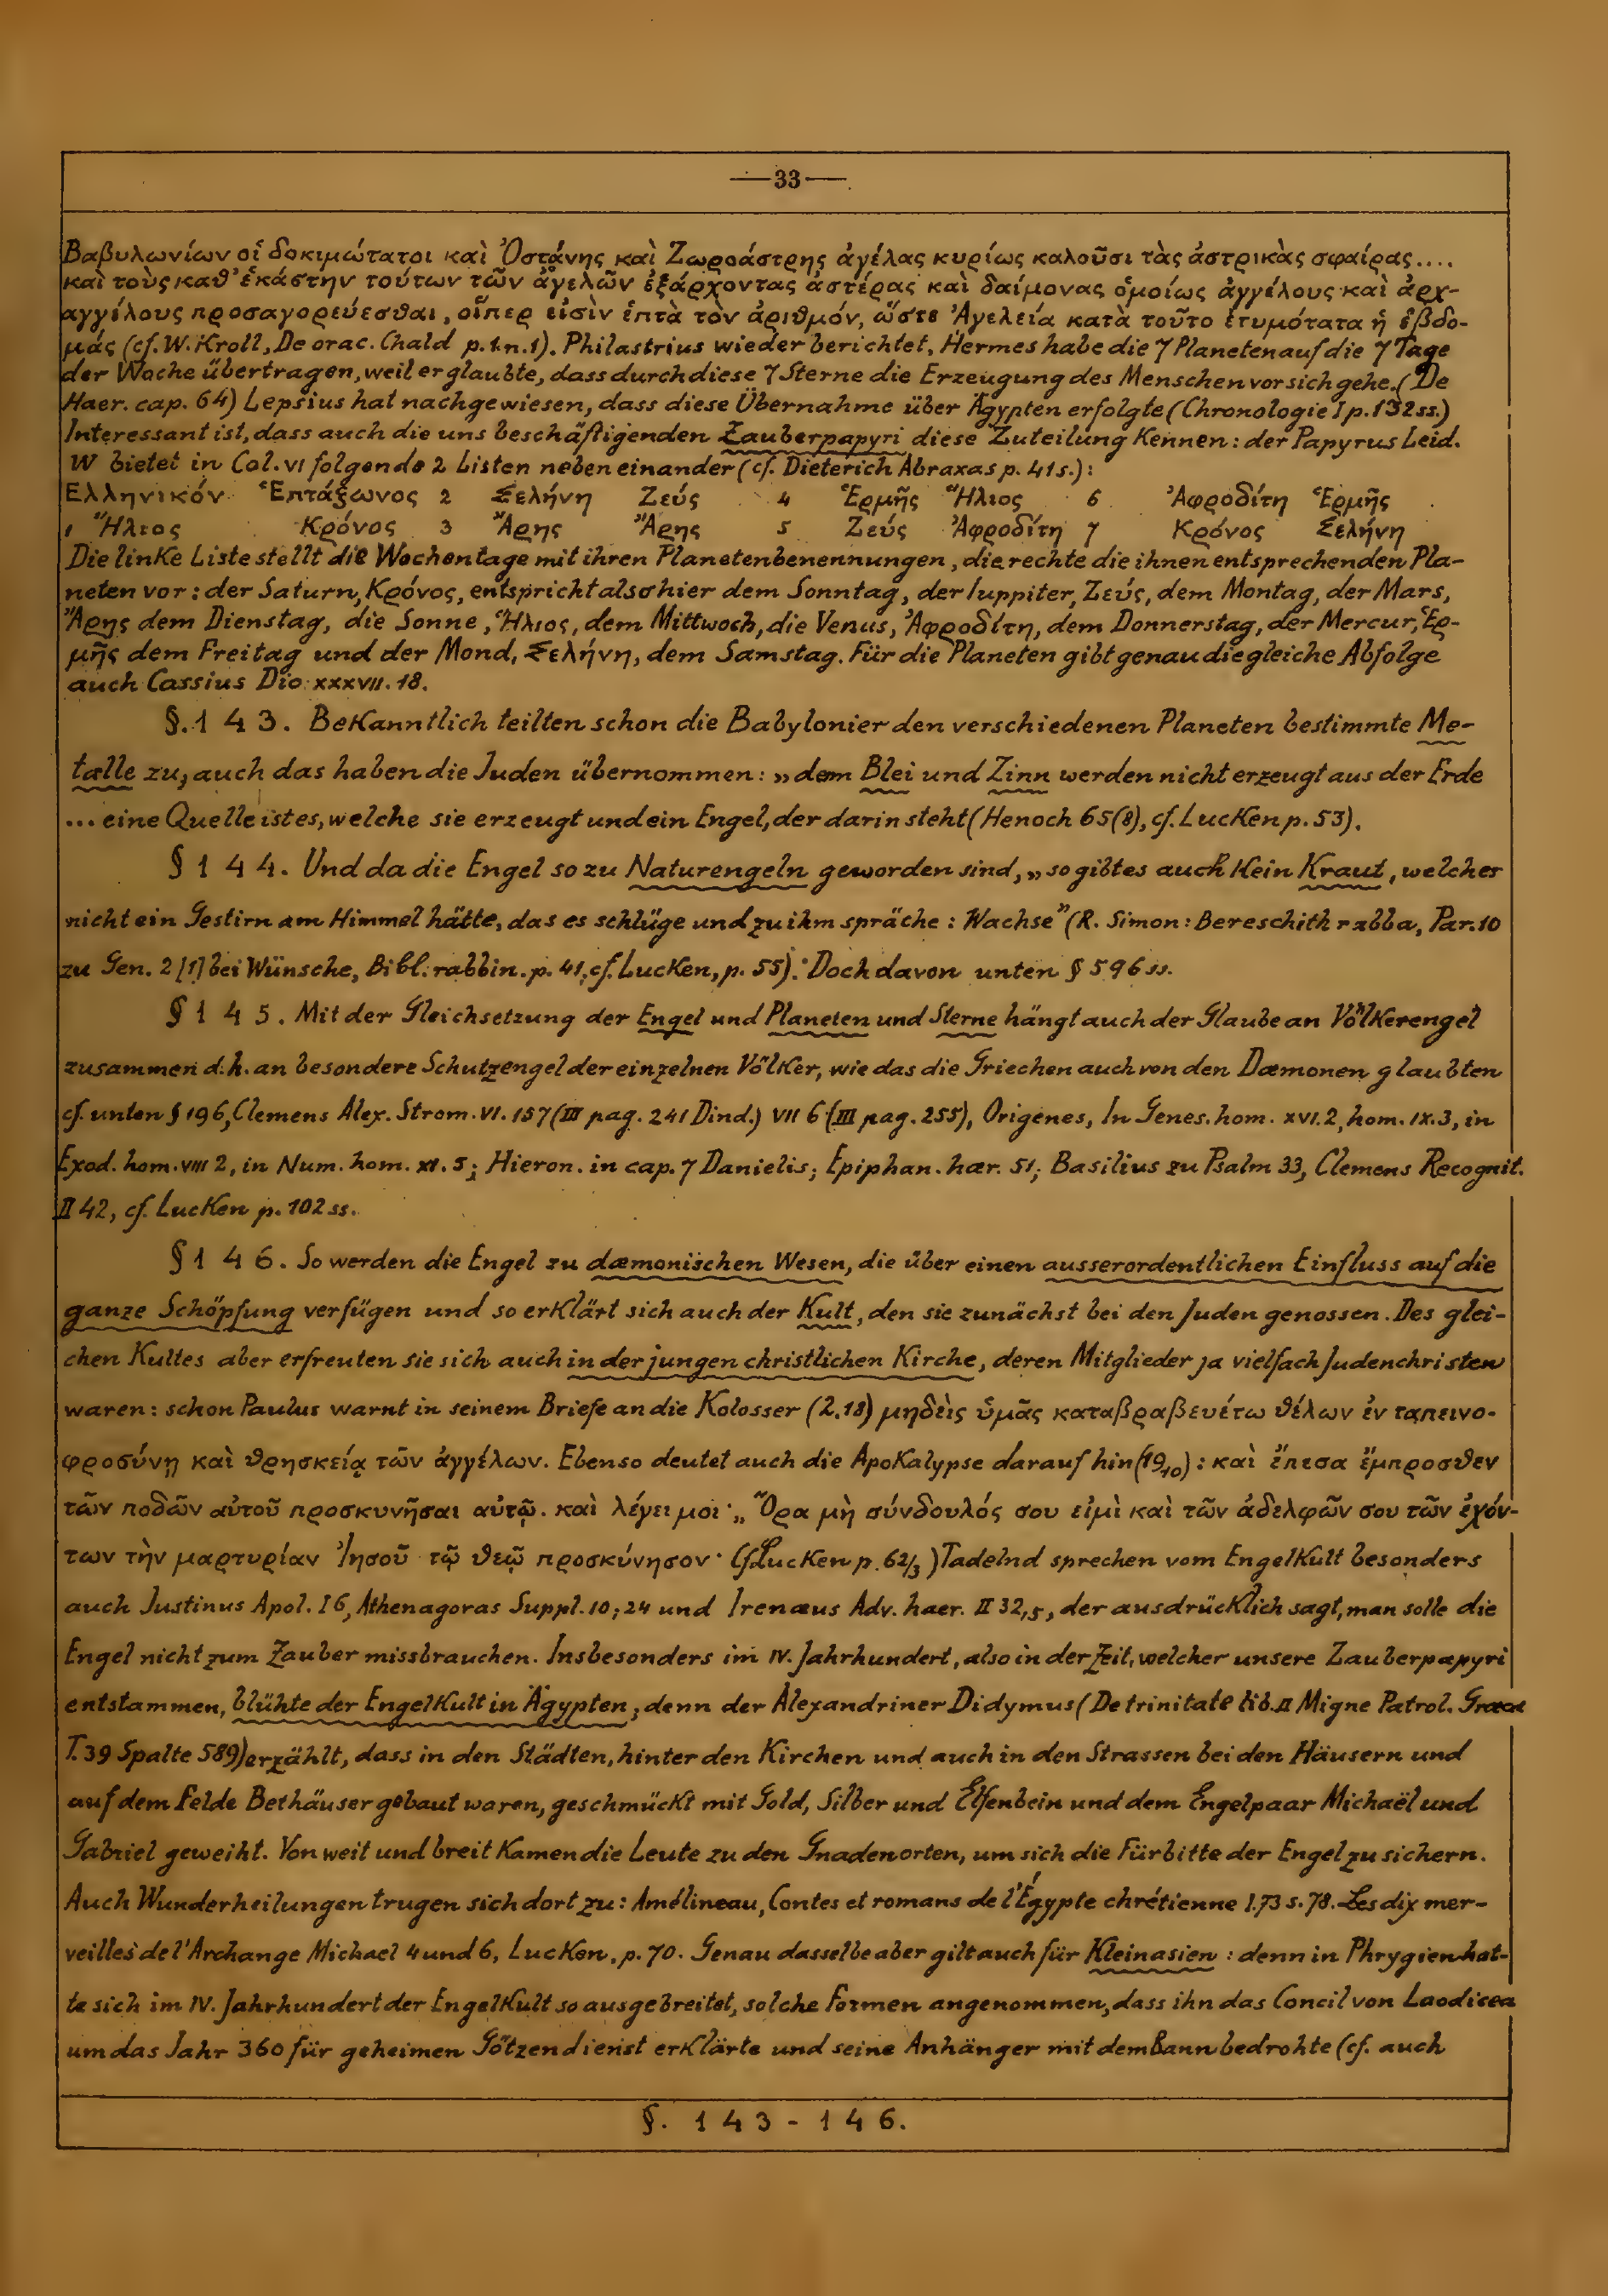 —33—
Βαβυλωνίων οἱ δοκιμώτατοι καὶ Ὀστάνης καὶ Ζωροάστρης ἀγέλας κυρίως καλοῦσι τὰς ἀστρικὰς σφαίρας....
καὶ τοὺς καθ' ἑκάστην τούτων τῶν ἀγελῶν ἐξάρχοντας ἀστέρας καὶ δαίμονας ὁμοίως ἀγγέλους καὶ ἀρχ-
αγγέλους προσαγορεύεσθαι, οἵπερ εἰσὶν ἑπτὰ τὸν ἀριθμόν, ὥστε Ἀγελεία κατὰ τοῦτο ἐτυμότατα ἡ ἑβδο-
μάς (cf. W. Kroll, De orac. Chald p. 1. n. 1). Philastrius wieder berichtet, Hermes habe die 7 Planeten auf die 7 Tage
der Woche übertragen, weil er glaubte, dass durch diese 7 Sterne die Erzeugung des Menschen vor sich gehe. (De
Haer. cap. 64) Lepsius hat nachgewiesen, dass diese Übernahme über Ägypten erfolgte (Chronologie I p. 132 ss.)
Interessant ist, dass auch die uns beschäftigenden Zauberpapyri diese Zuteilung kennen: der Papyrus Leid.
W bietet in Col. VI folgende 2 Listen neben einander (cf. Dieterich Abraxas p. 41 s.):
Ἑλληνικόν Ἑπτάζωνος 2 Σελήνη Ζεύς 4 Ἑρμῆς Ἥλιος 6 Ἀφροδίτη Ἑρμῆς
1 Ἥλιος Κρόνος 3 Ἄρης Ἄρης 5 Ζεύς Ἀφροδίτη 7 Κρόνος Σελήνη
Die linke Liste stellt die Wochentage mit ihren Planetenbenennungen, die rechte die ihnen entsprechenden Pla-
neten vor: der Saturn, Κρόνος, entspricht also hier dem Sonntag, der Iuppiter, Ζεύς, dem Montag, der Mars,
Ἄρης dem Dienstag, die Sonne, Ἥλιος, dem Mittwoch, die Venus, Ἀφροδίτη, dem Donnerstag, der Mercur, Ἑρ-
μῆς dem Freitag und der Mond, Σελήνη, dem Samstag. Für die Planeten gibt genau die gleiche Abfolge
auch Cassius Dio XXXVII. 18.
§. 143. Bekanntlich teilten schon die Babylonier den verschiedenen Planeten bestimmte Me-
talle zu, auch das haben die Juden übernommen: „dem Blei und Zinn werden nicht erzeugt aus der Erde
... eine Quelle ist es, welche sie erzeugt und ein Engel, der darin steht (Henoch 65(8), cf. Lucken p. 53).
§ 144. Und da die Engel so zu Naturengeln geworden sind, „so gibt es auch kein Kraut, welches
nicht ein Gestirn am Himmel hätte, das es schlüge und zu ihm spräche: Wachse" (R. Simon: Bereschith rabba, Par. 10
zu Gen. 2 [1] bei Wünsche, Bibl. rabbin. p. 41, cf. Lucken, p. 55). Doch davon unten § 596 ss.
§ 145. Mit der Gleichsetzung der Engel und Planeten und Sterne hängt auch der Glaube an Völkerengel
zusammen d. h. an besondere Schutzengel der einzelnen Völker, wie das die Griechen auch von den Dæmonen glaubten
cf. unten § 196, Clemens Alex. Strom. VI. 157 (III pag. 241 Dind.) VII 6 (III pag. 255), Origenes, In Genes. hom. XVI. 2, hom. IX. 3, in
Exod. hom. VIII 2, in Num. hom. XI. 5; Hieron. in cap. 7 Danielis; Epiphan. hær. 51; Basilius zu Psalm 33, Clemens Recognit.
II 42, cf. Lucken p. 102 ss.
§ 146. So werden die Engel zu dæmonischen Wesen, die über einen ausserordentlichen Einfluss auf die
ganze Schöpfung verfügen und so erklärt sich auch der Kult, den sie zunächst bei den Juden genossen. Des glei-
chen Kultes aber erfreuten sie sich auch in der jungen christlichen Kirche, deren Mitglieder ja vielfach Judenchristen
waren: schon Paulus warnt in seinem Briefe an die Kolosser (2.18) μηδεὶς ὑμᾶς καταβραβευέτω θέλων ἐν ταπεινο-
φροσύνῃ καὶ θρησκείᾳ τῶν ἀγγέλων. Ebenso deutet auch die Apokalypse darauf hin (19,10): καὶ ἔπεσα ἔμπροσθεν
τῶν ποδῶν αὐτοῦ προσκυνῆσαι αὐτῷ. καὶ λέγει μοι· „Ὅρα μὴ σύνδουλός σου εἰμὶ καὶ τῶν ἀδελφῶν σου τῶν ἐχόν-
των τὴν μαρτυρίαν Ἰησοῦ τῷ θεῷ προσκύνησον· (cf. Lucken p. 62/3) Tadelnd sprechen vom Engelkult besonders
auch Justinus Apol. I 6, Athenagoras Suppl. 10; 24 und Irenæus Adv. haer. II 32,5, der ausdrücklich sagt, man solle die
Engel nicht zum Zauber missbrauchen. Insbesonders im IV. Jahrhundert, also in der Zeit, welcher unsere Zauberpapyri
entstammen, blühte der Engelkult in Ägypten, denn der Alexandriner Didymus (De trinitate lib. II Migne Patrol. Graeca
T. 39 Spalte 589) erzählt, dass in den Städten, hinter den Kirchen und auch in den Strassen bei den Häusern und
auf dem Felde Bethäuser gebaut waren, geschmückt mit Gold, Silber und Elfenbein und dem Engelpaar Michaël und
Gabriel geweiht. Von weit und breit kamen die Leute zu den Gnadenorten, um sich die Fürbitte der Engel zu sichern.
Auch Wunderheilungen trugen sich dort zu: Amélineau, Contes et romans de l'Égypte chrétienne I. 73 s. 78. Les dix mer-
veilles de l'Archange Michael 4 und 6, Lucken, p. 70. Genau dasselbe aber gilt auch für Kleinasien: denn in Phrygien hat-
te sich im IV. Jahrhundert der Engelkult so ausgebreitet, solche Formen angenommen, dass ihn das Concil von Laodicea
um das Jahr 360 für geheimen Götzendienst erklärte und seine Anhänger mit dem Bann bedrohte (cf. auch
§. 143-146.